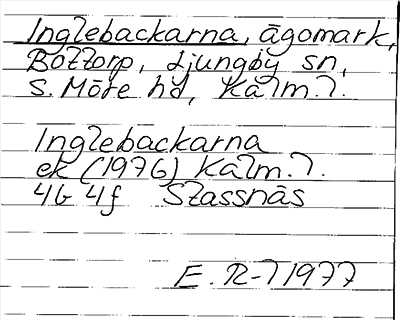 Inglebackarna, ägomark,
Bottorp, Ljungby sn,
S. Möre hd, Kalm. l.
Inglebackarna
ek (1976) Kalm. l.
4G 4f Stassnäs
E. R-l 1977